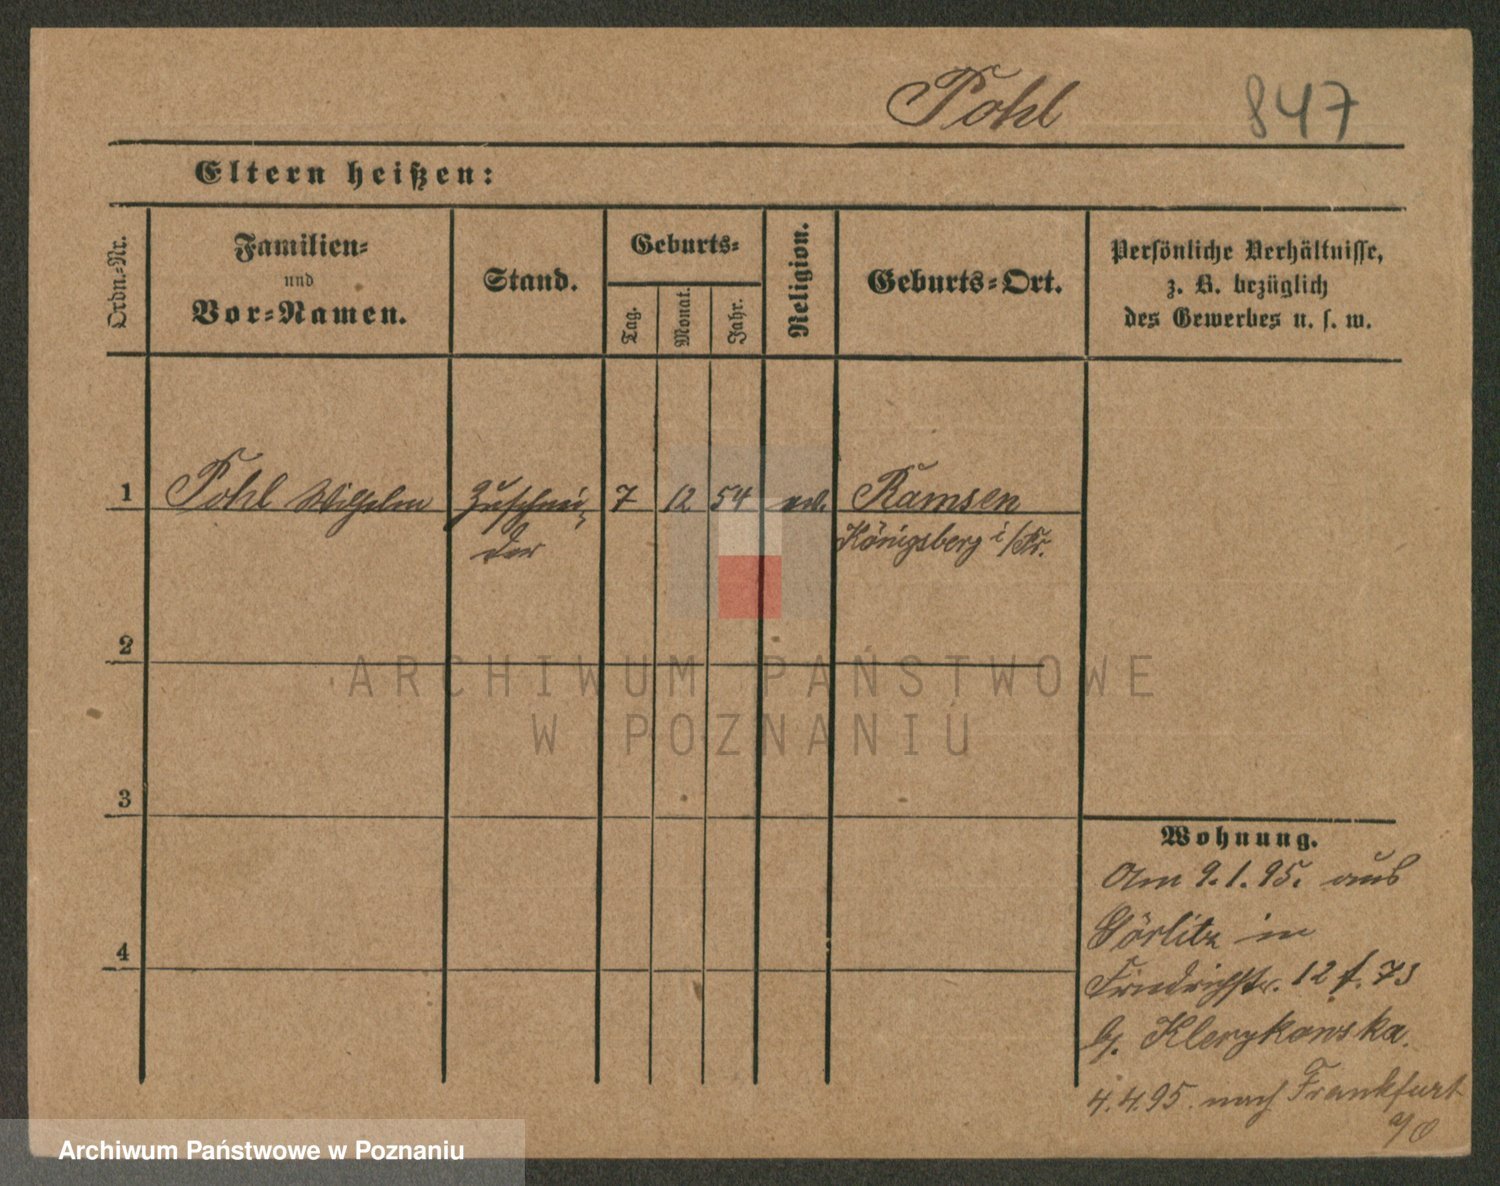 Pohl 847
Eltern heißen:
Ordn.-Nr.
Familien-
und
Vor-Namen.
Stand.
Geburts-
Tag.
Monat.
Jahr.
Religion.
Geburts-Ort.
Persönliche Verhältnisse,
z. B. bezüglich
des Gewerbes u. s. w.
1 Pohl Wilhelm Zuschnei- 7 12 54 ev. Ramsen
der Königsberg i/Pr.
2
3
4
Wohnung.
Am 9.1.95. aus
Görlitz in
Friedrichstr. 12 f. 73
b. Klerykowska.
4.4.95. nach Frankfurt
a/O
ARCHIWUM PAŃSTWOWE
W POZNANIU
Archiwum Państwowe w Poznaniu